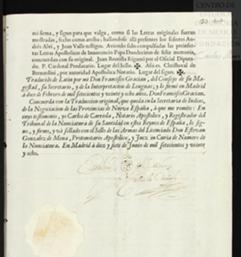 mi ſerna, y ſignas para que valga, como ſi las Letras originales fueran
moſtradas, fecho como arriba: hallandoſe allí preſentes los ſeñores
Andrés Abri, y Juan Valle teſtigos. Aviendo ſido compulſadas las
Letras Apoſtolicas de Innocencio Papa Duodecimo de feliz memoria,
concuerdan con ſu original. Juan Bautiſta Riganti por el Oficial Diputado
P. Cardenal Prodatario. Lugar del ſello. ✠ Aſsi es. Chriſtoval de
Bernardini, por autoridad Apoſtolica Notario. Lugar del ſigno. ✠
Traducido de Latin por mi Don Franciſco Gracian, del Conſejo de ſu Ma-
geſtad, ſu Secretario, y de la Interpretacion de Lenguas, y lo firmé en Madrid
à dos de Febrero de mil ſetecientos y veinte y ocho años. Don Franciſco Gracian.
Concorda con ſu Traducion original, que queda en la Secretaría de Indias,
de la Negociacion de las Provincias de Nueva Eſpaña, à que me remito: En
cuyo teſtimonio, yo Carlos de Notario Apoſtolico, y Regiſtrador del
Tribunal de la Nunciatura de ſu Santidad en eſtos Reynos de Eſpaña, lo ſig-
no, y firmo, y và ſellado con el Sello de las Armas del Licenciado Don Eſtevan
Gonzalez de Mena, Protonotario Apoſtolico, y Juez in Curia de Numero de
la Nunciatura. En Madrid à diez y ſiete de Junio de mil ſetecientos y veinte
y ocho.